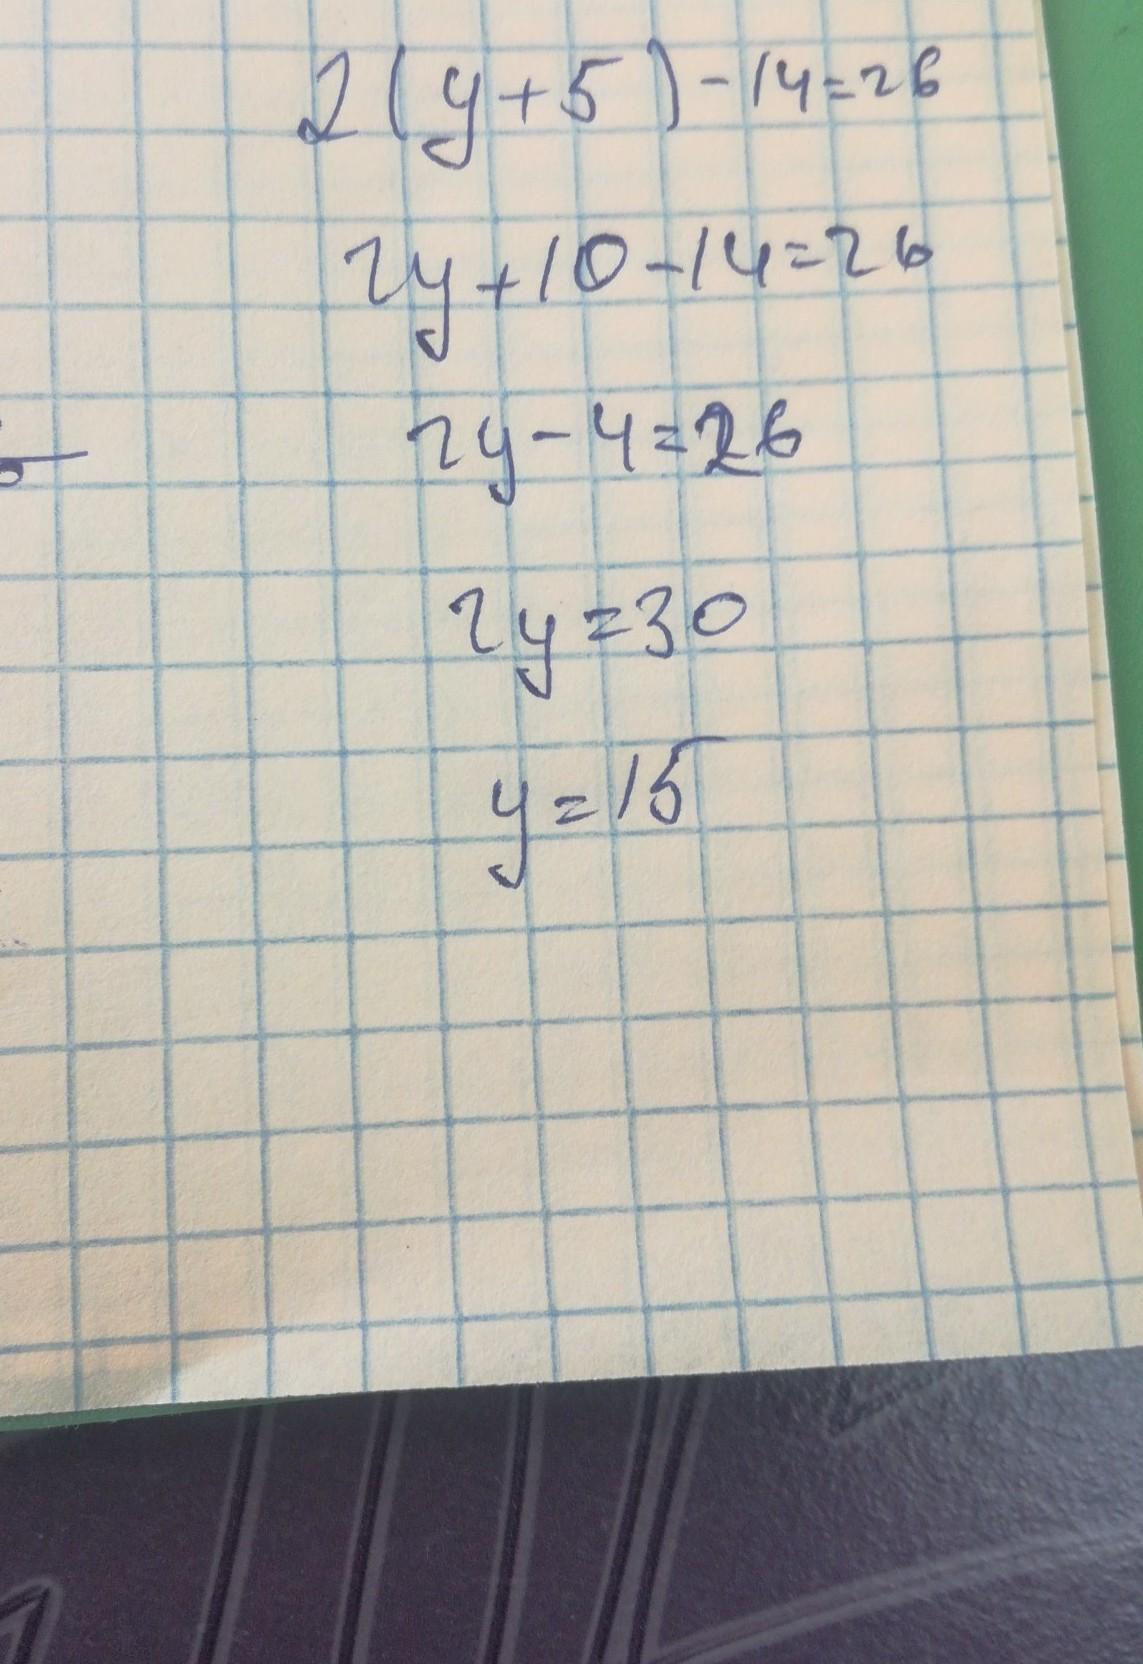 2(y+5)-14=26
2y+10-14=26
2y-4=26
2y=30
y=15